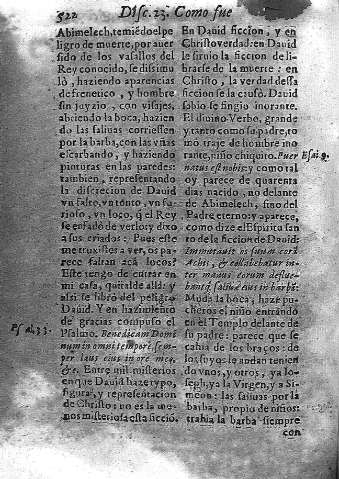 522 Disc. 23. Como fue
Abimelech, temiẽdo el pe
ligro de muerte, por auer
sido de los vasallos del
Rey conocido, se dissimu
lò, haziendo aparencias
de frenetico, y hombre
sin juyzio, con visajes,
abriendo la boca, hazien
do las saliuas corriessen
por la barba, con las vñas
escarbando, y haziendo
pinturas en las paredes:
tambien, representando
la discrecion de Dauid
vn salto, vn tonto, vn fu-
rioso, vn loco, q̃ el Rey
se enfado de verlo; y dixo
a sus criados: Pues este
me truxistes a ver, os pa-
rece faltan acà locos?
Este tengo de entrar en
mi casa, quitalde allà: y
assi se librò del peligro
Dauid. Y en hazimiento
de gracias compuso el
Ps al. 33. Psalmo. Benedicam Domi
num in omni tempore, sem-
per laus eius in ore meo,
&c. Entre mil misterios
en que Dauid haze typo,
figura, y representacion
de Christo: no es la me-
nos misteriosa esta ficciõ.
En Dauid ficcion, y en
Christo verdad: en Dauid
le siruio la ficcion de li-
brarse de la muerte: en
Christo, la verdad dessa
ficcion se la causò. Dauid
sabio se fingio inorante.
El diuino Verbo, grande
y tanto como su padre, to
mò traje de hombre ino
rante, niño chiquito. Puer Esai. 9.
natus est nobis; y como tal
oy parece de quarenta
dias nacido, no delante
de Abimelech, sino del
Padre eterno: y aparece,
como dize el Espiritu san
to de la ficcion de Dauid:
Immutauit os suum coram
Achis, & collabebatur in-
ter manus eorum deflue-
bantq; saliuæ eius in barbã:
Muda la boca, haze pu-
cheros el niño entrando
en el Templo delante de
su padre: parece que se
cahia de los braços: de
los suyos se andan tenien
do vnos, y otros, ya Io-
seph, ya la Virgen, y a Si-
meon: las saliuas por la
barba, propio de niños:
trahia la barba siempre
con